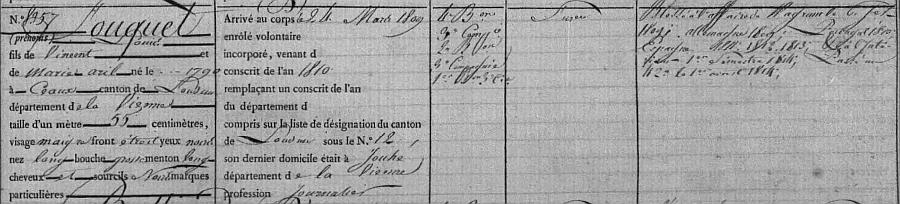 N.° 8357 Pouquet
(prénoms) Louis
fils de Vincent et
de Marie avil né le 1790
à Ceaux canton de Loudun
département de la Vienne
taille d'un mètre 55 centimètres,
visage maigre front étroit yeux noirs
nez long bouche petite menton long
cheveux et sourcils Noirs marques
particulières
Arrivé au corps le 24 Mars 1809
enrôlé volontaire
incorporé, venant d
conscrit de l'an 1810
remplaçant un conscrit de l'an
du département d
compris sur la liste de désignation du canton
de Loudun sous le N.° 12,
son dernier domicile était à Jouhe
département de la Vienne
profession Journalier
4e Bon
3e Compie
2e Bon
3e Compagnie
1er Bon 3e Cie
Blessé à l'affaire de Wagram le 6 Jet
1809. allemagne 1809. Portugal 1810.
Espagne 1812, 1813,
1er Semestre 1814,
le 1er avril 1814,